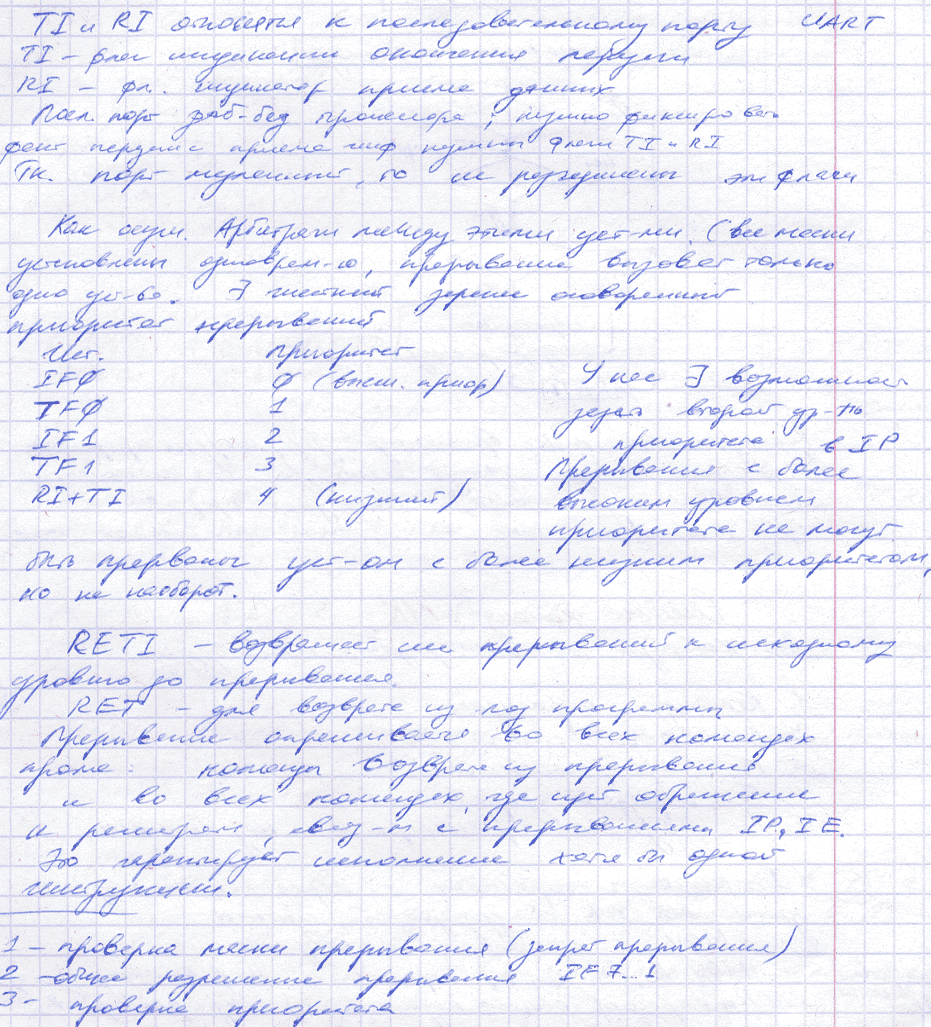 TI и RI относятся к последовательному порту UART
TI – флаг индикации окончания передачи
RI – фл. индикатор приема данных
Посл. порт раб-бед процессора; нужно фиксировать
факт передачи приема инф нужны флаги TI и RI
Тк. порт медленный, то не разделены эти флаги
Как осущ. Арбитраж между этими уст-ми. (все маски
установлены одноврем-о, прерывание вызовет только
одно уст-во. Ǝ жесткий заранее оговоренный
приоритет прерываний
Ист. Приоритет
IFØ Ø (высш. приор) У нас Ǝ возможность
TFØ 1 задать второй ур-нь
IF1 2 приоритета в IP
TF1 3 Прерывания с более
RI+TI 4 (низший) высоким уровнем
приоритета не могут
быть прерваны уст-ом с более низким приоритетом,
но не наоборот.
RETI – возвращает сис прерываний к исходному
уровню до прерывания.
RET – для возврата из под программы
Прерывание опрашивается во всех командах
кроме: команды возврата из прерывания
и во всех командах, где идет обращение
к регистрам, связ-м с прерываниями IP, IE.
Это гарантирует исполнение хотя бы одной
инструкции.
1 – проверка маски прерывания (запрет прерывания)
2 – общее разрешение прерывания IE7..1
3 – проверка приоритета